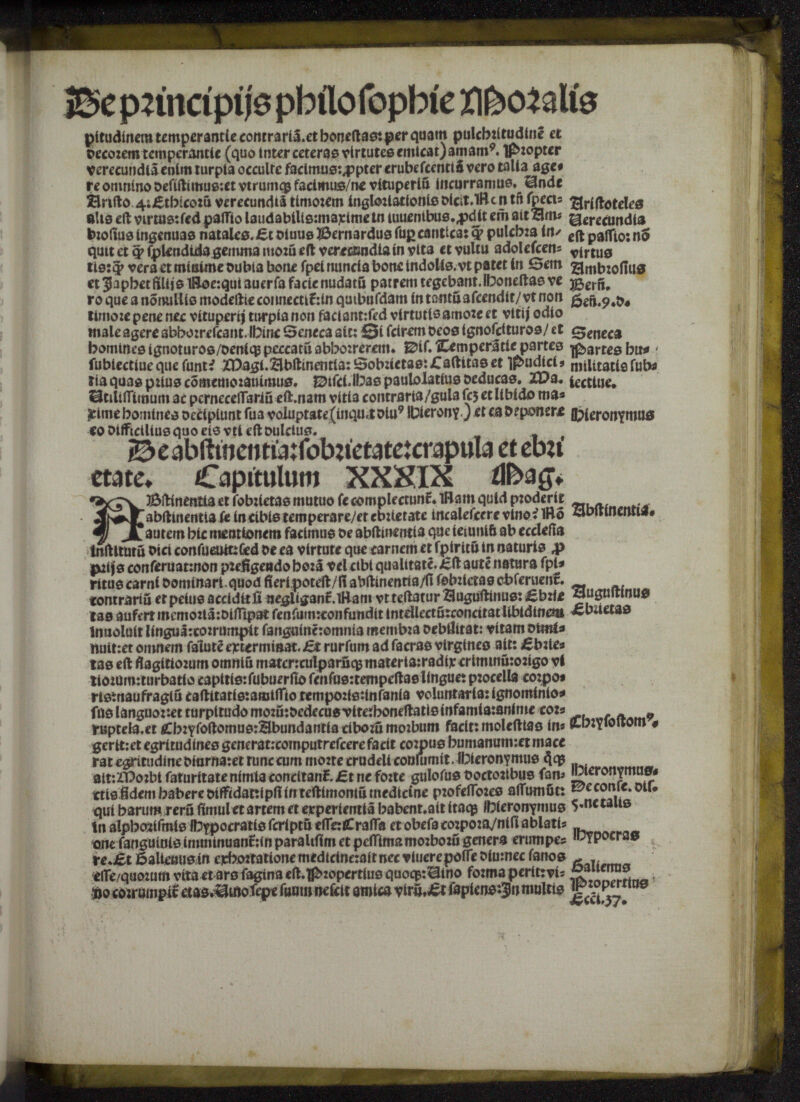 De principijs philosophie Moralis
pitudinem temperantie contrariā. et honestas: per quam pulchritudinē et
decorem temperantie (quo inter ceteras virtutes emicat) amamꝰ. Propter
verecundiā enim turpia occulte facimus: ꝓpter erubescentiā vero talia age-
re omnino desistimus: et vtrumqꝫ facimus/ne vituperiū incurramus. Unde
Aristo. 4. Ethicorū verecundiā timorem inglorationis dicit. Nō tñ speci-
alis est virtus: sed passio laudabilis: maxime in iuuenibus. ꝓdit em̄ ait Am-
brosius ingenuas natales. Et diuus Bernardus sup cantica: ꝙ pulchra in-
quit et ꝙ splendida gemma morū est verecundia in vita et vultu adolescen-
tis: ꝙ vera et minime dubia bone spei nuncia bone indolis. vt patet in Sem
et Japhet filijs Noe: qui auersa facie nudatū patrem tegebant. Honestas ve
ro que a nōnullis modestie connectit̄: in quibusdam in tantū ascendit/vt non
timore pene nec vituperij turpia non faciant: sed virtutis amore et vitij odio
male agere abhorrescant. Hinc Seneca ait: Si scirem deos ignoscituros/et
homines ignoturos/deniqꝫ peccatū abhorrerem. Dis. Temperātie partes
subiectiue que sunt? Magi. Abstinentia: Sobrietas: Castitas et Pudici-
tia quas prius cōmemorauimus. Disci. Has paulo latius deducas. Ma.
Utilissimum ac pernecessariū est. nam vitia contraria/gula scꝫ et libido ma-
xime homines decipiunt sua voluptate (inquit diuꝰ Hierony.) et ea deponere
eo difficilius quo eis vti est dulcius.
De abstinentia: sobrietate: crapula et ebri
etate. Capitulum XXXIX Mag.
ABstinentia et sobrietas mutuo se complectunt̄. Nam quid proderit
abstinentia se in cibis temperare/et ebrietate incalescere vino? Nō
autem hic mentionem facimus de abstinentia que ieiuniū ab ecclesia
institutū dici consueuit: sed de ea virtute que carnem et spiritū in naturis ꝓ
prijs conseruat: non prefigendo horā vel cibi qualitatē. Est autē natura spi-
ritus carni dominari. quod fieri potest/si abstinentia/si sobrietas obseruent̄.
contrariū et peius accidit si negligant̄. Nam vt testatur Augustinus: Ebrie
tas aufert memoriā: dissipat sensum: confundit intellectū: concitat libidinem
inuoluit linguā: corrumpit sanguinē: omnia membra debilitat: vitam dimi-
nuit: et omnem salutē exterminat. Et rursum ad sacras virgines ait: Ebrie-
tas est flagitiorum omniū mater: culparūqꝫ materia: radix criminū: origo vi
tiorum: turbatio capitis: subuersio sensus: tempestas lingue: procella corpo-
ris: naufragiū castitatis: amissio temporis: insania voluntaria: ignominio-
sus languor: et turpitudo morū: dedecus vite: honestatis infamia: anime cor-
ruptela. et Chrysostomus: Abundantia ciborū morbum facit: molestias in-
gerit: et egritudines generat: computrescere facit corpus humanum: et mace
rat egritudine diurna: et tunc cum morte crudeli consumit. Hieronymus qͦqꝫ
ait: Morbi saturitate nimia concitant̄. Et ne forte gulosus doctoribus san-
ctis fidem habere diffidat: ipsi in testimoniū medicine professores assumūt:
qui harum rerū simul et artem et experientiā habent. ait itaqꝫ Hieronymus
in alphorismis Hypocratis scriptū esse: Crassa et obesa corpora/nisi ablati-
one sanguinis imminuant̄: in paralisim et pessima morborū genera erumpe-
re. Et Galienus in exhortatione medicine: ait nec viuere posse diu: nec sanos
esse/quorum vita et ars sagina est. Propertius quoqꝫ: Uino forma perit: vi-
no corrumpit̄ etas. Uino sepe suum nescit amica virū. Et sapiens: In multis
Aristoteles
Uerecundia
est passio: nō
virtus
Ambrosius
Bern̄.
Gen̄. 9. d.
Seneca
Partes hu-
militatis sub-
iectiue.
Hieronymus
Abstinentia.
Augustinus
Ebrietas
Chrysostomꝰ.
Hieronymus.
De conse. dis.
5. ne talis
Hypocras
Galienus
Propertius
Ecci. 37.